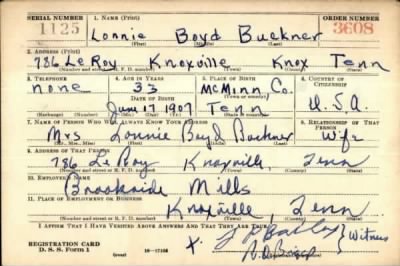 SERIAL NUMBER 1. NAME (Print) ORDER NUMBER
1125 Lonnie Boyd Buckner 3608
(First) (Middle) (Last)
2. ADDRESS (Print)
786 LeRoy Knoxville Knox Tenn
(Number and street or R. F. D. number) (Town) (County) (State)
3. TELEPHONE 4. AGE IN YEARS 5. PLACE OF BIRTH 6. COUNTRY OF CITIZENSHIP
none 33 McMinn Co.
DATE OF BIRTH (Town or county)
June 17 1907 Tenn U.S.A
(Exchange) (Number) (Mo.) (Day) (Yr.) (State or country)
7. NAME OF PERSON WHO WILL ALWAYS KNOW YOUR ADDRESS 8. RELATIONSHIP OF THAT PERSON
Mrs Lonnie Boyd Buckner Wife
(Mr., Mrs., Miss) (First) (Middle) (Last)
9. ADDRESS OF THAT PERSON
786 LeRoy Knoxville, Tenn
(Number and street or R. F. D. number) (Town) (County) (State)
10. EMPLOYER'S NAME
Brookside Mills
11. PLACE OF EMPLOYMENT OR BUSINESS
Knoxville, Tenn
(Number and street or R. F. D. number) (Town) (County) (State)
I AFFIRM THAT I HAVE VERIFIED ABOVE ANSWERS AND THAT THEY ARE TRUE.
REGISTRATION CARD
D. S. S. Form 1 X. Witness
(over)